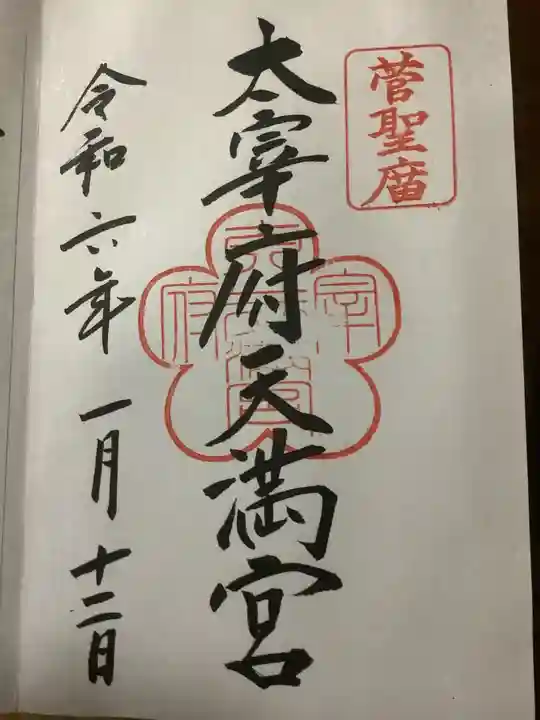 菅聖庿
太宰府天満宮
令和六年一月十二日